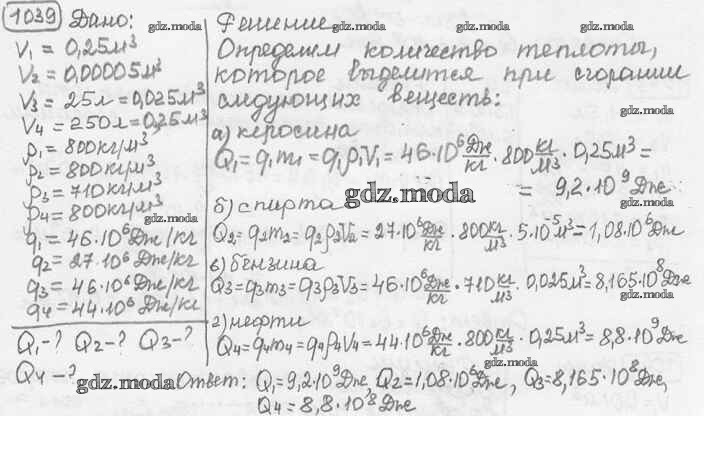 1039 Дано:
V₁ = 0,25м³
V₂ = 0,00005м³
V₃ = 25л = 0,025м³
V₄ = 250л = 0,25м³
ρ₁ = 800кг/м³
ρ₂ = 800кг/м³
ρ₃ = 710кг/м³
ρ₄ = 800кг/м³
q₁ = 46·10⁶Дж/кг
q₂ = 27·10⁶Дж/кг
q₃ = 46·10⁶Дж/кг
q₄ = 44·10⁶Дж/кг
Q₁-? Q₂-? Q₃-?
Q₄-?
Решение
Определим количество теплоты,
которое выделится при сгорании
следующих веществ:
а) керосина
Q₁ = q₁m₁ = q₁ρ₁V₁ = 46·10⁶Дж/кг · 800кг/м³ · 0,25м³ =
= 9,2·10⁹Дж
б) спирта
Q₂ = q₂m₂ = q₂ρ₂V₂ = 27·10⁶Дж/кг · 800кг/м³ · 5·10⁻⁵м³ = 1,08·10⁶Дж
в) бензина
Q₃ = q₃m₃ = q₃ρ₃V₃ = 46·10⁶Дж/кг · 710кг/м³ · 0,025м³ = 8,165·10⁸Дж
г) нефти
Q₄ = q₄m₄ = q₄ρ₄V₄ = 44·10⁶Дж/кг · 800кг/м³ · 0,25м³ = 8,8·10⁹Дж
Ответ: Q₁ = 9,2·10⁹Дж Q₂ = 1,08·10⁶Дж, Q₃ = 8,165·10⁸Дж,
Q₄ = 8,8·10⁸Дж
gdz.moda
gdz.moda
gdz.moda
gdz.moda
gdz.moda
gdz.moda
gdz.moda
gdz.moda
gdz.moda
gdz.moda
gdz.moda
gdz.moda